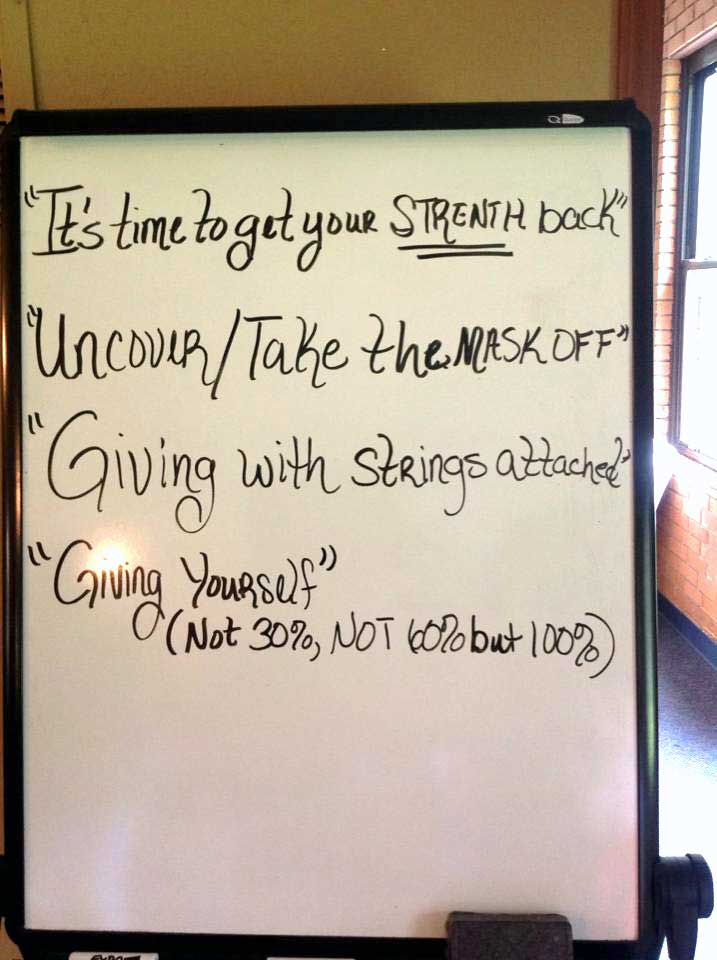 "It's time to get your STRENTH back"
"Uncover/Take the MASK OFF"
"Giving with strings attached"
"Giving Yourself"
(Not 30%, NOT 60% but 100%)